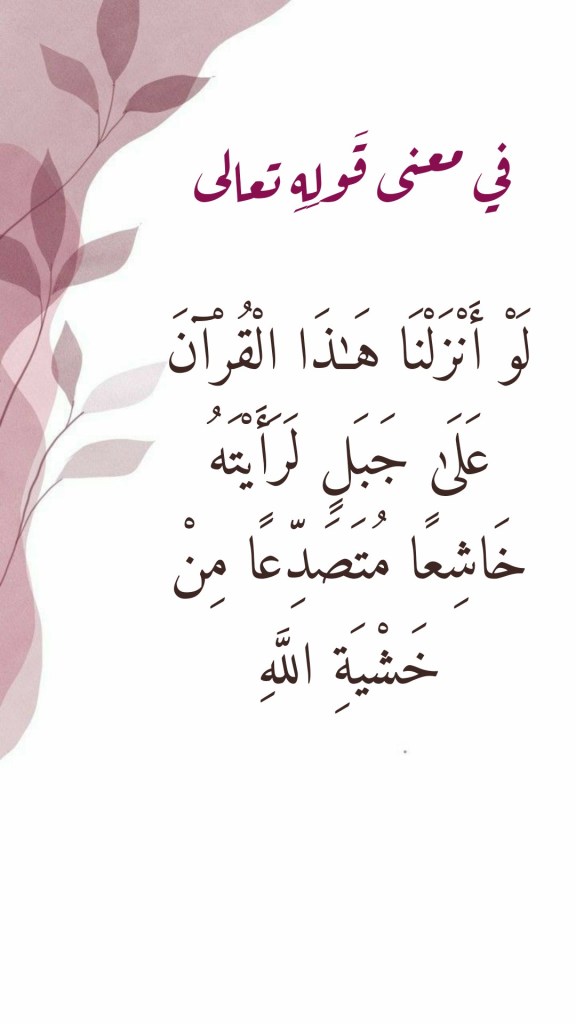 في معنى قَولِهِ تعالى
لَوْ أَنْزَلْنَا هَٰذَا الْقُرْآنَ
عَلَىٰ جَبَلٍ لَرَأَيْتَهُ
خَاشِعًا مُتَصَدِّعًا مِنْ
خَشْيَةِ اللَّهِ